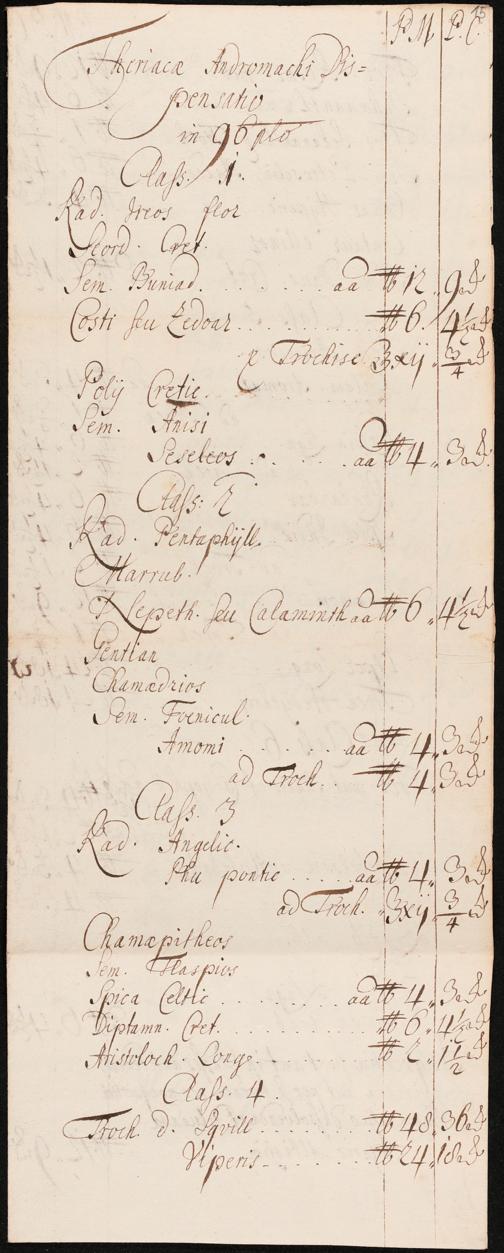 15
P. M. P. C.
Theriacæ Andromachi Dis=
pensatio
in 96 plo
Class. 1.
Rad. Ireos flor
Scord. Cret.
Sem. Buniad. . . . . . . . aa ℔ 12 „ 9 ℔
Costi seu Zedoar. . . . . . . ℔ 6 „ 4 1/2 ℔
p Trochisc ℥xij 3/4 ℔
Polij Cretic.
Sem. Anisi
Seseleos . . . . . aa ℔ 4 „ 3 ℔
Class: 2
Rad. Pentaphyll.
Marrub.
Nepeth. seu Calaminth aa ℔ 6 „ 4 1/2 ℔
Gentian
Chamædrios
Sem. Foenicul.
Amomi . . . . . aa ℔ 4 „ 3 ℔
ad Troch. . . ℔ 4 „ 3 ℔
Class. 3
Rad. Angelic.
Phu pontic . . . . . aa ℔ 4 „ 3 ℔
ad Troch. „ ℥xij „ 3/4 ℔
Chamæpitheos
Sem. Thlaspios
Spica Celtic . . . . . . . . aa ℔ 4 „ 3 ℔
Diptamn. Cret. . . . . . . . . ℔ 6 „ 4 1/2 ℔
Aristoloch. Long. . . . . . . . ℔ 2 „ 1 1/2 ℔
Class. 4.
Troch. d. Sqvill . . . . . . . ℔ 48 „ 36 ℔
Viperis . . . . . . . ℔ 24 „ 18 ℔